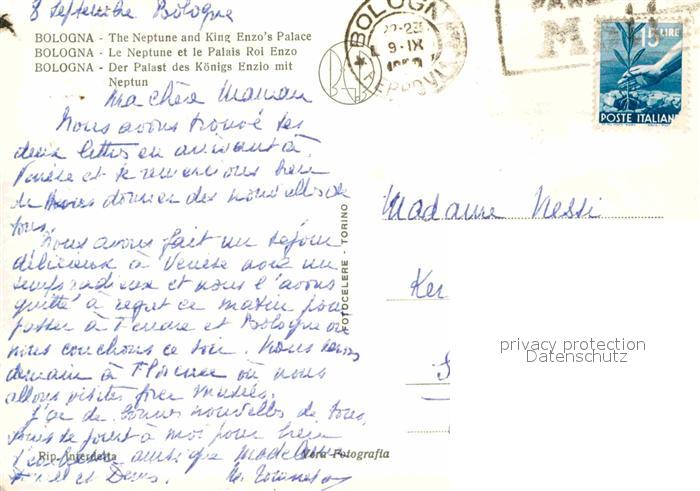 8 Septembre Bologne
BOLOGNA - The Neptune and King Enzo's Palace
BOLOGNA - Le Neptune et le Palais Roi Enzo
BOLOGNA - Der Palast des Königs Enzio mit
Neptun
BOLOGNA
9-IX
FERROVIA
15 LIRE
POSTE ITALIANE
Ma chère Maman
Nous avons trouvé tes
deux lettres en arrivant à
Venise et te remercions bien
de donner des nouvelles de
tous.
Nous avons fait un séjour
délicieux à Venise avec un
temps radieux et nous l'avons
quitté à regret ce matin pour
passer à et Bologne où
nous couchons ce soir. Nous serons
demain à Florence où nous
allons visiter musées.
J'ai de bonnes nouvelles de tous,
à moi pour bien
t'embrasser ainsi que
et Denis.
FOTOCELERE - TORINO
Madame Nessi
Ker
privacy protection
Datenschutz
Rip. Interdetta
Vera Fotografia